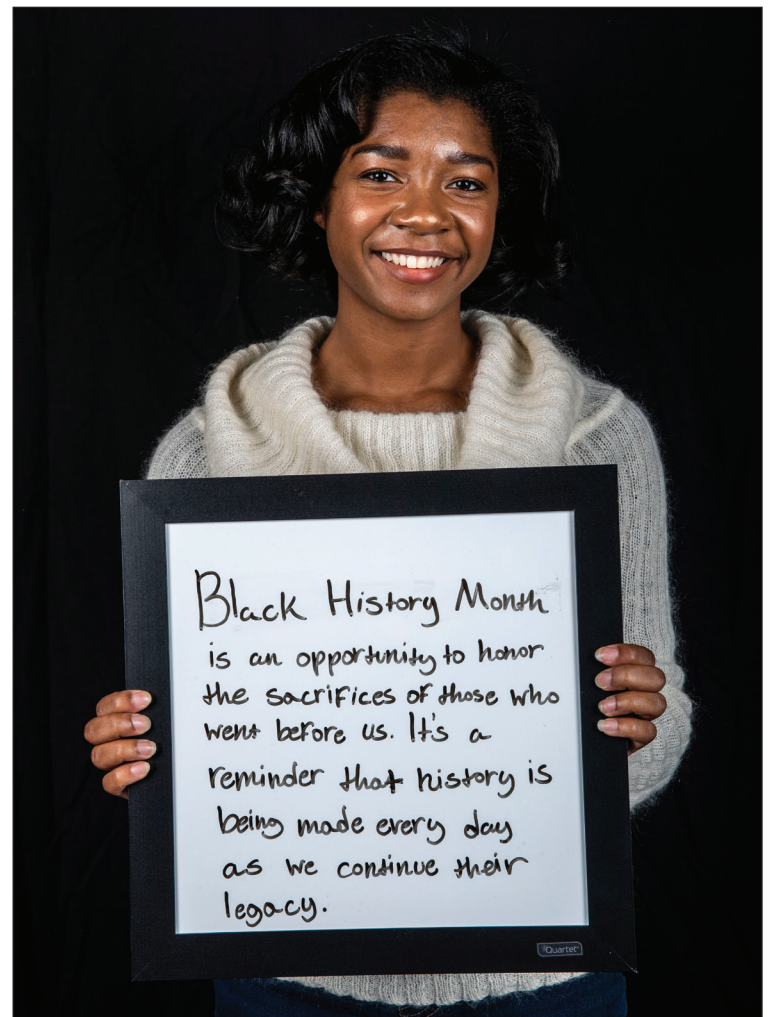 Black History Month
is an opportunity to honor
the sacrifices of those who
went before us. It's a
reminder that history is
being made every day
as we continue their
legacy.
Quartet